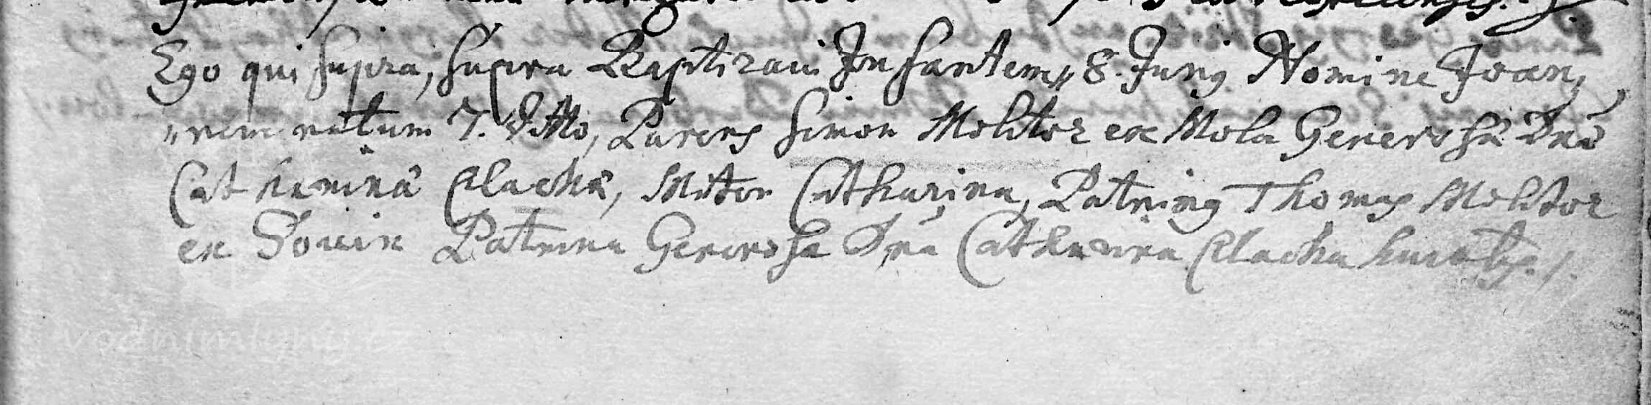 Ego qui supra, supra Baptizavi Infantem 8. Junÿ Nomine Joan,
nem natum 7. ditto, Parens Simon Molitor ex Mola Generosâ Dnâ
Catharinâ Mater Catharina, Patrinus Thomas Molitor
ex Patrina Generosa Dna Catharina
vodnimlyny.cz